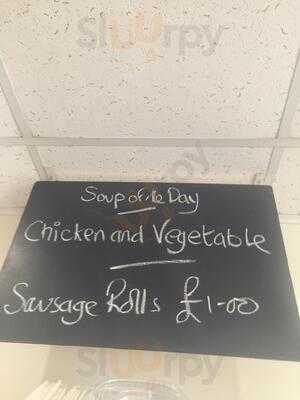 Sluurpy
Soup of the Day
Chicken and Vegetable
Sausage Rolls £1-00
Sluurpy